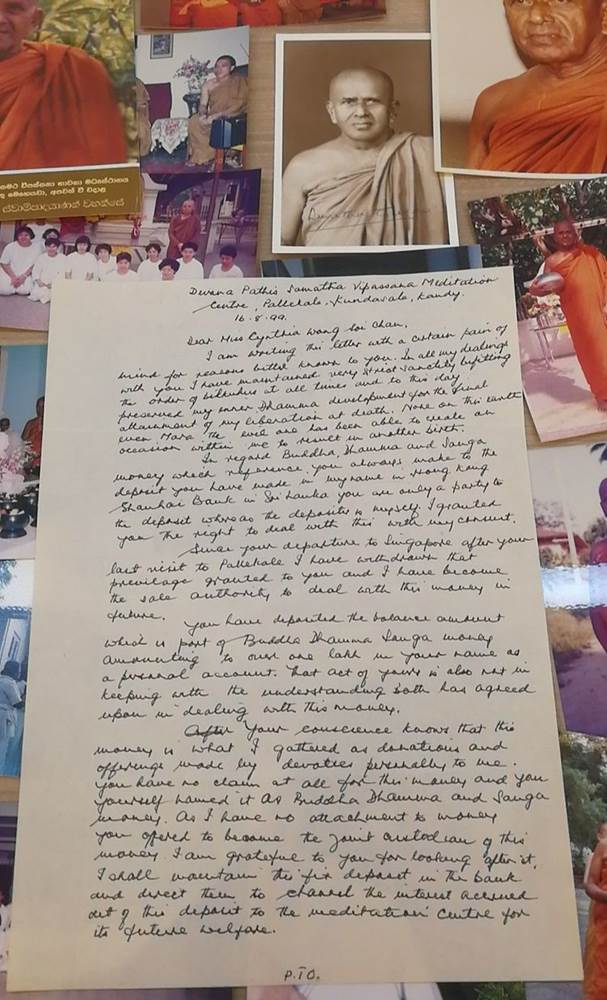 සමථ විපස්සනා භාවනා මධ්‍යස්ථානය
Dwana Pathis Samatha Vipassana Meditation
Centre, Pallekale, Kundasale, Kandy.
16.8.99.
Dear Miss Cynthia Wong Soi Chan,
I am writing this letter with a certain pain of
mind for reasons better known to you. In all my dealings
with you I have maintained very strict sanctity befitting
the order of bikkhus at all times and to this day
preserved my inner Dhamma development for the final
attainment of my liberation at death. None on this earth
even Mara the evil one has been able to create an
occasion within me to result in another birth.
In regard Buddha, Dhamma and Sanga
money which reference you always make to the
deposit you have made in my name in Hong Kong
Shanhai Bank in Sri Lanka you are only a party to
the deposit whereas the depositer is myself. I granted
you the right to deal with this with my consent.
Since your departure to Singapore after your
last visit to Pallekale I have withdrawn that
previlage granted to you and I have become
the sole authority to deal with this money in
future.
You have deposited the balance amount
which is part of Buddha Dhamma Sanga money
amounting to over one lakh in your name as
a personal account. That act of yours is also not in
keeping with the understanding both has agreed
upon in dealing with this money.
Your conscience knows that this
money is what I gathered as donations and
offerings made by devotees personally to me.
You have no claim at all for this money and you
yourself named it as Buddha Dhamma and Sanga
money. As I have no attachment to money
you offered to become the joint custodian of this
money. I am grateful to you for looking after it.
I shall maintain this fix deposit in the bank
and direct them to channel the interest accrued
out of this deposit to the meditation centre for
its future welfare.
P.T.O.